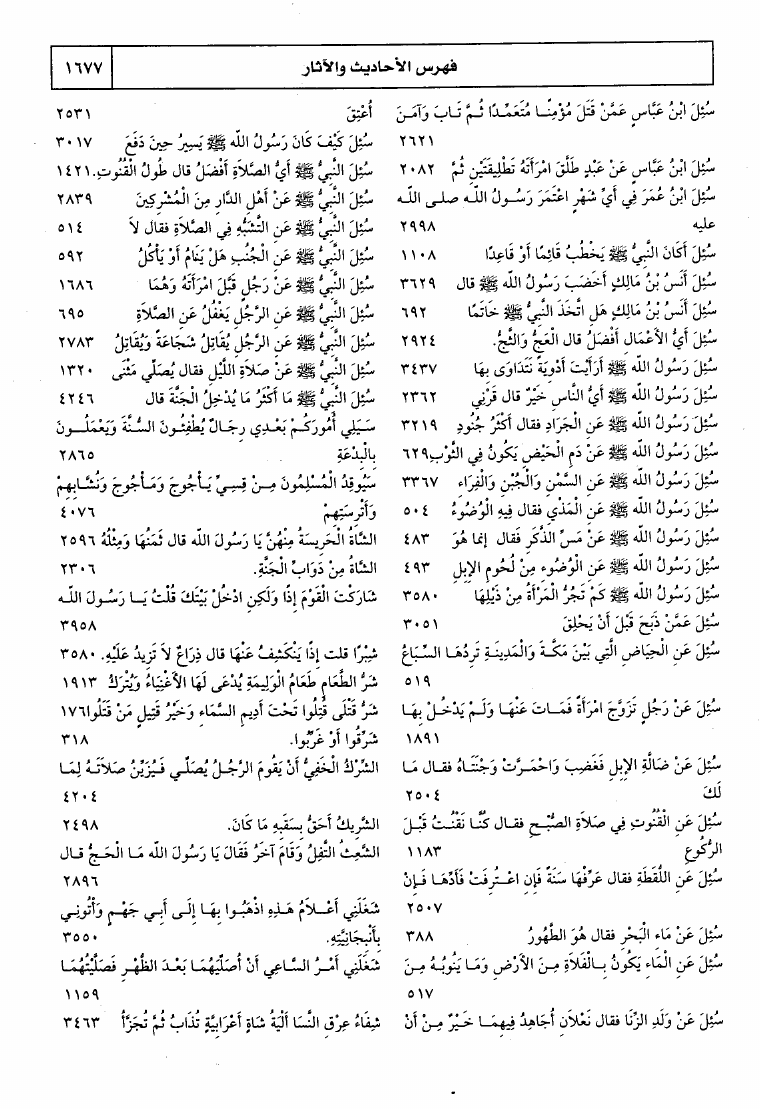 فهرس الأحاديث والآثار
١٦٧٧
سُئِلَ ابْنُ عَبَّاسٍ عَمَّنْ قَتَلَ مُؤْمِنًا مُتَعَمِّدًا ثُمَّ تَابَ وَآمَنَ
٢٦٢١
سُئِلَ ابْنُ عَبَّاسٍ عَنْ عَبْدٍ طَلَّقَ امْرَأَتَهُ تَطْلِيقَتَيْنِ ثُمَّ ٢٠٨٢
سُئِلَ ابْنُ عُمَرَ فِي أَيِّ شَهْرٍ اعْتَمَرَ رَسُولُ اللَّه صلى الله
عليه ٢٩٩٨
سُئِلَ أَكَانَ النَّبِيُّ ﷺ يَخْطُبُ قَائِمًا أَوْ قَاعِدًا ١١٠٨
سُئِلَ أَنَسُ بْنُ مَالِكٍ أَخَضَبَ رَسُولُ اللَّه ﷺ قال ٣٦٢٩
سُئِلَ أَنَسُ بْنُ مَالِكٍ هَلِ اتَّخَذَ النَّبِيُّ ﷺ خَاتَمًا ٦٩٢
سُئِلَ أَيُّ الأَعْمَالِ أَفْضَلُ قال الْعَجُّ وَالثَّجُّ. ٢٩٢٤
سُئِلَ رَسُولُ اللَّه ﷺ أَرَأَيْتَ أَدْوِيَةً نَتَدَاوَى بِهَا ٣٤٣٧
سُئِلَ رَسُولُ اللَّه ﷺ أَيُّ النَّاسِ خَيْرٌ قال قَرْنِي ٢٣٦٢
سُئِلَ رَسُولُ اللَّه ﷺ عَنِ الْجَرَادِ فقال أَكْثَرُ جُنُودِ ٣٢١٩
سُئِلَ رَسُولُ اللَّه ﷺ عَنْ دَمِ الْحَيْضِ يَكُونُ فِي الثَّوْبِ ٦٢٩
سُئِلَ رَسُولُ اللَّه ﷺ عَنِ السَّمْنِ وَالْجُبْنِ وَالْفِرَاءِ ٣٣٦٧
سُئِلَ رَسُولُ اللَّه ﷺ عَنِ الْمَذْيِ فقال فِيهِ الْوُضُوءُ ٥٠٤
سُئِلَ رَسُولُ اللَّه ﷺ عَنْ مَسِّ الذَّكَرِ فقال إنما هُوَ ٤٨٣
سُئِلَ رَسُولُ اللَّه ﷺ عَنِ الْوُضُوءِ مِنْ لُحُومِ الإِبِلِ ٤٩٣
سُئِلَ رَسُولُ اللَّه ﷺ كَمْ تَجُرُّ الْمَرْأَةُ مِنْ ذَيْلِهَا ٣٥٨٠
سُئِلَ عَمَّنْ ذَبَحَ قَبْلَ أَنْ يَحْلِقَ ٣٠٥١
سُئِلَ عَنِ الْحِيَاضِ الَّتِي بَيْنَ مَكَّةَ وَالْمَدِينَةِ تَرِدُهَا السِّبَاعُ
٥١٩
سُئِلَ عَنْ رَجُلٍ تَزَوَّجَ امْرَأَةً فَمَاتَ عَنْهَا وَلَمْ يَدْخُلْ بِهَا
١٨٩١
سُئِلَ عَنْ ضَالَّةِ الإِبِلِ فَغَضِبَ وَاحْمَرَّتْ وَجْنَتَاهُ فقال مَا
لَكَ ٢٥٠٤
سُئِلَ عَنِ الْقُنُوتِ فِي صَلاَةِ الصُّبْحِ فقال كُنَّا نَقْنُتُ قَبْلَ
الرُّكُوعِ ١١٨٣
سُئِلَ عَنِ اللُّقَطَةِ فقال عَرِّفْهَا سَنَةً فَإِنِ اعْتُرِفَتْ فَأَدِّهَا فَإِنْ
٢٥٠٧
سُئِلَ عَنْ مَاءِ الْبَحْرِ فقال هُوَ الطَّهُورُ ٣٨٨
سُئِلَ عَنِ الْمَاءِ يَكُونُ بِالْفَلاَةِ مِنَ الأَرْضِ وَمَا يَنُوبُهُ مِنَ
٥١٧
سُئِلَ عَنْ وَلَدِ الزِّنَا فقال نَعْلاَنِ أُجَاهِدُ فِيهِمَا خَيْرٌ مِنْ أَنْ
أُعْتِقَ ٢٥٣١
سُئِلَ كَيْفَ كَانَ رَسُولُ اللَّه ﷺ يَسِيرُ حِينَ دَفَعَ ٣٠١٧
سُئِلَ النَّبِيُّ ﷺ أَيُّ الصَّلاَةِ أَفْضَلُ قال طُولُ الْقُنُوتِ. ١٤٢١
سُئِلَ النَّبِيُّ ﷺ عَنْ أَهْلِ الدَّارِ مِنَ الْمُشْرِكِينَ ٢٨٣٩
سُئِلَ النَّبِيُّ ﷺ عَنِ التَّشَبُّهِ فِي الصَّلاَةِ فقال لاَ ٥١٤
سُئِلَ النَّبِيُّ ﷺ عَنِ الْجُنُبِ هَلْ يَنَامُ أَوْ يَأْكُلُ ٥٩٢
سُئِلَ النَّبِيُّ ﷺ عَنْ رَجُلٍ قَبَّلَ امْرَأَتَهُ وَهُمَا ١٦٨٦
سُئِلَ النَّبِيُّ ﷺ عَنِ الرَّجُلِ يَغْفُلُ عَنِ الصَّلاَةِ ٦٩٥
سُئِلَ النَّبِيُّ ﷺ عَنِ الرَّجُلِ يُقَاتِلُ شَجَاعَةً وَيُقَاتِلُ ٢٧٨٣
سُئِلَ النَّبِيُّ ﷺ عَنْ صَلاَةِ اللَّيْلِ فقال يُصَلِّي مَثْنَى ١٣٢٠
سُئِلَ النَّبِيُّ ﷺ مَا أَكْثَرُ مَا يُدْخِلُ الْجَنَّةَ قال ٤٢٤٦
سَيَلِي أُمُورَكُمْ بَعْدِي رِجَالٌ يُطْفِئُونَ السُّنَّةَ وَيَعْمَلُونَ
بِالْبِدْعَةِ ٢٨٦٥
سَيُوقِدُ الْمُسْلِمُونَ مِنْ قِسِيِّ يَأْجُوجَ وَمَأْجُوجَ وَنُشَّابِهِمْ
وَأَتْرِسَتِهِمْ ٤٠٧٦
الشَّاةُ الْحَرِيسَةُ مِنْهُنَّ يَا رَسُولَ اللَّه قال ثَمَنُهَا وَمِثْلُهُ ٢٥٩٦
الشَّاةُ مِنْ دَوَابِّ الْجَنَّةِ. ٢٣٠٦
شَارَكْتَ الْقَوْمَ إِذًا وَلَكِنِ ادْخُلْ بَيْتَكَ قُلْتُ يَا رَسُولَ اللَّه
٣٩٥٨
شِبْرًا قلت إِذًا يَنْكَشِفُ عَنْهَا قال ذِرَاعٌ لاَ تَزِيدُ عَلَيْهِ. ٣٥٨٠
شَرُّ الطَّعَامِ طَعَامُ الْوَلِيمَةِ يُدْعَى لَهَا الأَغْنِيَاءُ وَيُتْرَكُ ١٩١٣
شَرُّ قَتْلَى قُتِلُوا تَحْتَ أَدِيمِ السَّمَاءِ وَخَيْرُ قَتِيلٍ مَنْ قَتَلُوا ١٧٦
شَرِّقُوا أَوْ غَرِّبُوا. ٣١٨
الشِّرْكُ الْخَفِيُّ أَنْ يَقُومَ الرَّجُلُ يُصَلِّي فَيُزَيِّنُ صَلاَتَهُ لِمَا
٤٢٠٤
الشَّرِيكُ أَحَقُّ بِسَقَبِهِ مَا كَانَ. ٢٤٩٨
الشَّعِثُ التَّفِلُ وَقَامَ آخَرُ فَقَالَ يَا رَسُولَ اللَّه مَا الْحَجُّ قال
٢٨٩٦
شَغَلَنِي أَعْلاَمُ هَذِهِ اذْهَبُوا بِهَا إِلَى أَبِي جَهْمٍ وَأْتُونِي
بِأَنْبِجَانِيَّتِهِ. ٣٥٥٠
شَغَلَنِي أَمْرُ السَّاعِي أَنْ أُصَلِّيَهُمَا بَعْدَ الظُّهْرِ فَصَلَّيْتُهُمَا
١١٥٩
شِفَاءُ عِرْقِ النَّسَا أَلْيَةُ شَاةٍ أَعْرَابِيَّةٍ تُذَابُ ثُمَّ تُجَزَّأُ ٣٤٦٣